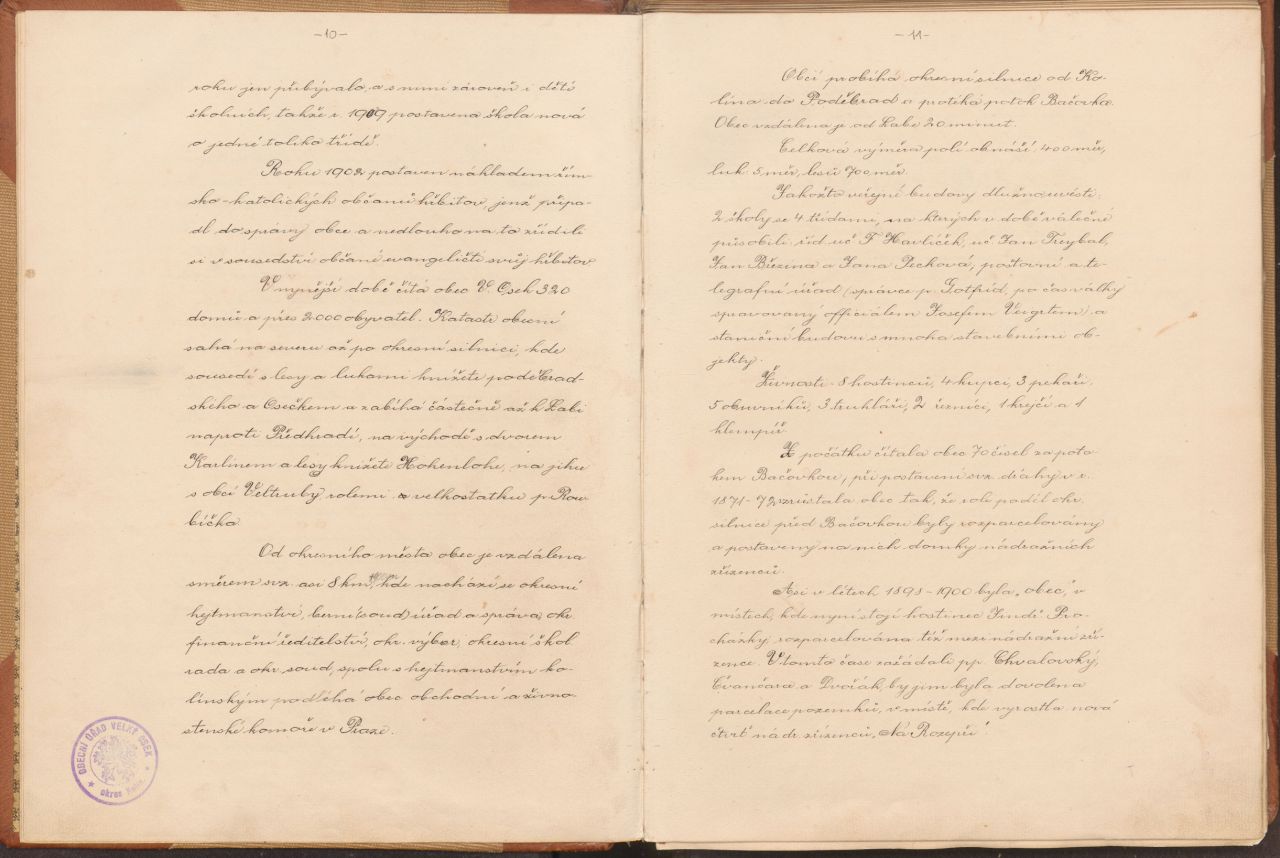 -10-
roku jen přibývalo, a s nimi zároveň i dětí
školních, takže r. 1909 postavena škola nová
o jedné toliko třídě.
Roku 1902 postaven nákladem řím-
sko-katolických občanů hřbitov, jenž připa-
dl do správy obce a nedlouho na to zřídili
si v sousedství občané evangeličtí svůj hřbitov
V nynější době čítá obec V. Osek 320
domů a přes 2000 obyvatel. Katastr obecní
sahá na severu až po okresní silnici, kde
sousedí s lesy a lukami knížete poděbrad-
ského a Osečkem a zabíhá částečně až k Labi
naproti Předhradí, na východě s dvorem
Karlínem a lesy knížete Hohenlohe, na jihu
s obcí Veltruby rolemi a velkostatku p. Rou-
bíčka.
Od okresního města obec je vzdálena
směrem svz. asi 8 km, kde nachází se okresní
hejtmanství, berní (soud) úřad a správa, okr.
finanční ředitelství, okr. výbor, okresní škol.
rada a okr. soud, spolu s hejtmanstvím ko-
línským podléhá obec obchodní a živno-
stenské komoře v Praze.
OBECNÍ ÚŘAD VELKÝ OSEK
okres Kolín
-11-
Obcí probíhá okresní silnice od Ko-
lína do Poděbrad a protéká potok Bačovka.
Obec vzdálena je od Labe 20 minut.
Celková výměra polí obnáší 400 měr,
luk 5 měr, lesů 700 měr.
Jakožto veřejné budovy dlužno uvésti:
2 školy se 4 třídami, na kterých v době válečné
působili: říd. uč. F. Havlíček, uč. Jan Treybal,
Jan Březina a Jana Pechová, poštovní a te-
legrafní úřad (správce p. Gotfrid, po čas války
spravovaný officiálem Josefem Veigrtem) a
staniční budovu s mnoha stavebními ob-
jekty.
Živnosti: 8 hostinců, 4 kupci, 3 pekaři,
5 obuvníků, 3 truhláři, 2 řezníci, 1 krejčí a 1
klempíř.
Z počátku čítala obec 70 čísel za poto-
kem Bačovkou, při postavení svz. dráhy v r.
1871-72 vzrůstala obec tak, že role podél okr.
silnice před Bačovkou byly rozparcelovány
a postaveny na nich domky nádražních
zřízenců.
Asi v létech 1898-1900 byla „obec“, v
místech, kde nyní stojí hostinec Jindř. Pro-
cházky, rozparcelována též mezi nádražní zří-
zence. V tomto čase zažádali pp. Chvalovský,
Cvančara a Dvořák, by jim byla dovolena
parcelace pozemků, v místě, kde vyrostla nová
čtvrť nádr. zřízenců, „Na Rozepři“.